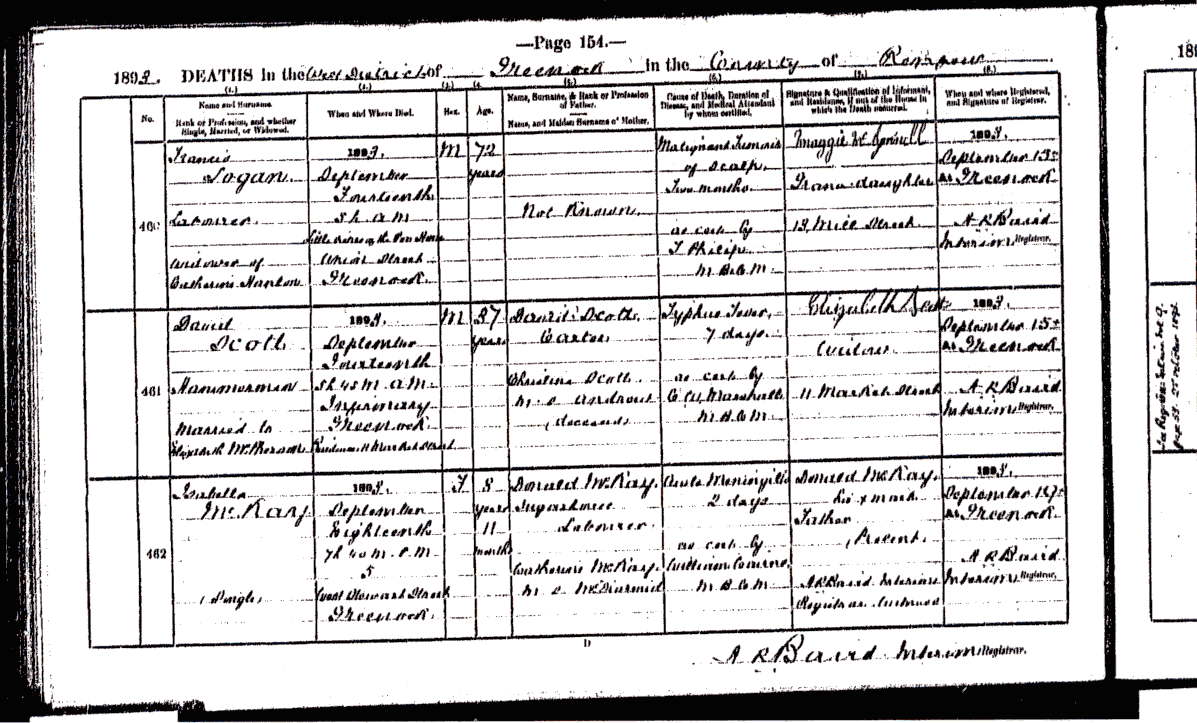 —Page 154.—
1893. DEATHS in the West District of Greenock in the County of Renfrew
(1.)
(2.)
(3.)
(4.)
(5.)
(6.)
(7.)
(8.)
No.
Name and Surname.
Rank or Profession, and whether
Single, Married, or Widowed.
When and Where Died.
Sex.
Age.
Name, Surname, & Rank or Profession
of Father.
Name, and Maiden Surname of Mother.
Cause of Death, Duration of
Disease, and Medical Attendant
by whom certified.
Signature & Qualification of Informant,
and Residence, if out of the House in
which the Death occurred.
When and where Registered,
and Signature of Registrar.
460
Francis
Logan.
Labourer
Widower of
Catherine
1893.
September
Fourteenth
5h. A.M.
Little Sisters of the Poor Home
Union Street
Greenock.
M
72
years
Not Known.
Malignant Tumour
of Scalp.
Two months.
as cert by
J Philip
M.B.C.M.
Maggie
Grand-daughter
13, Mill Street
1893.
September 15th
At Greenock
A R Baird
Interim Registrar.
461
David
Scott
Hammerman
Married to
Elizabeth McPherson
1893.
September
Fourteenth
5h 45m A.M.
Infirmary
Greenock
Residence 11 Market Street
M
37
years
David Scott,
Carter
Christina Scott
M.S. Andrews
(deceased)
Typhus Fever,
7 days.
as cert by
Marshall
M.B.C.M.
Elizabeth Scott
Widow
11 Market Street
1893.
September 15th
At Greenock
A R Baird
Interim Registrar.
462
Isabella
McKay
(Single)
1893.
September
Eighteenth
7h 40m P.M.
5
West Stewart Street
Greenock.
F
8
years
11
months
Donald McKay,
Sugarhouse
Labourer
Catherine McKay,
M.S. McDiarmid
Acute Meningitis
2 days
as cert by
William
M.B.C.M.
Donald McKay.
his x mark
Father
(Present)
A R Baird Interim
Registrar. Witness
1893.
September
At Greenock
A R Baird
Interim Registrar.
D
A R Baird Interim Registrar.
189